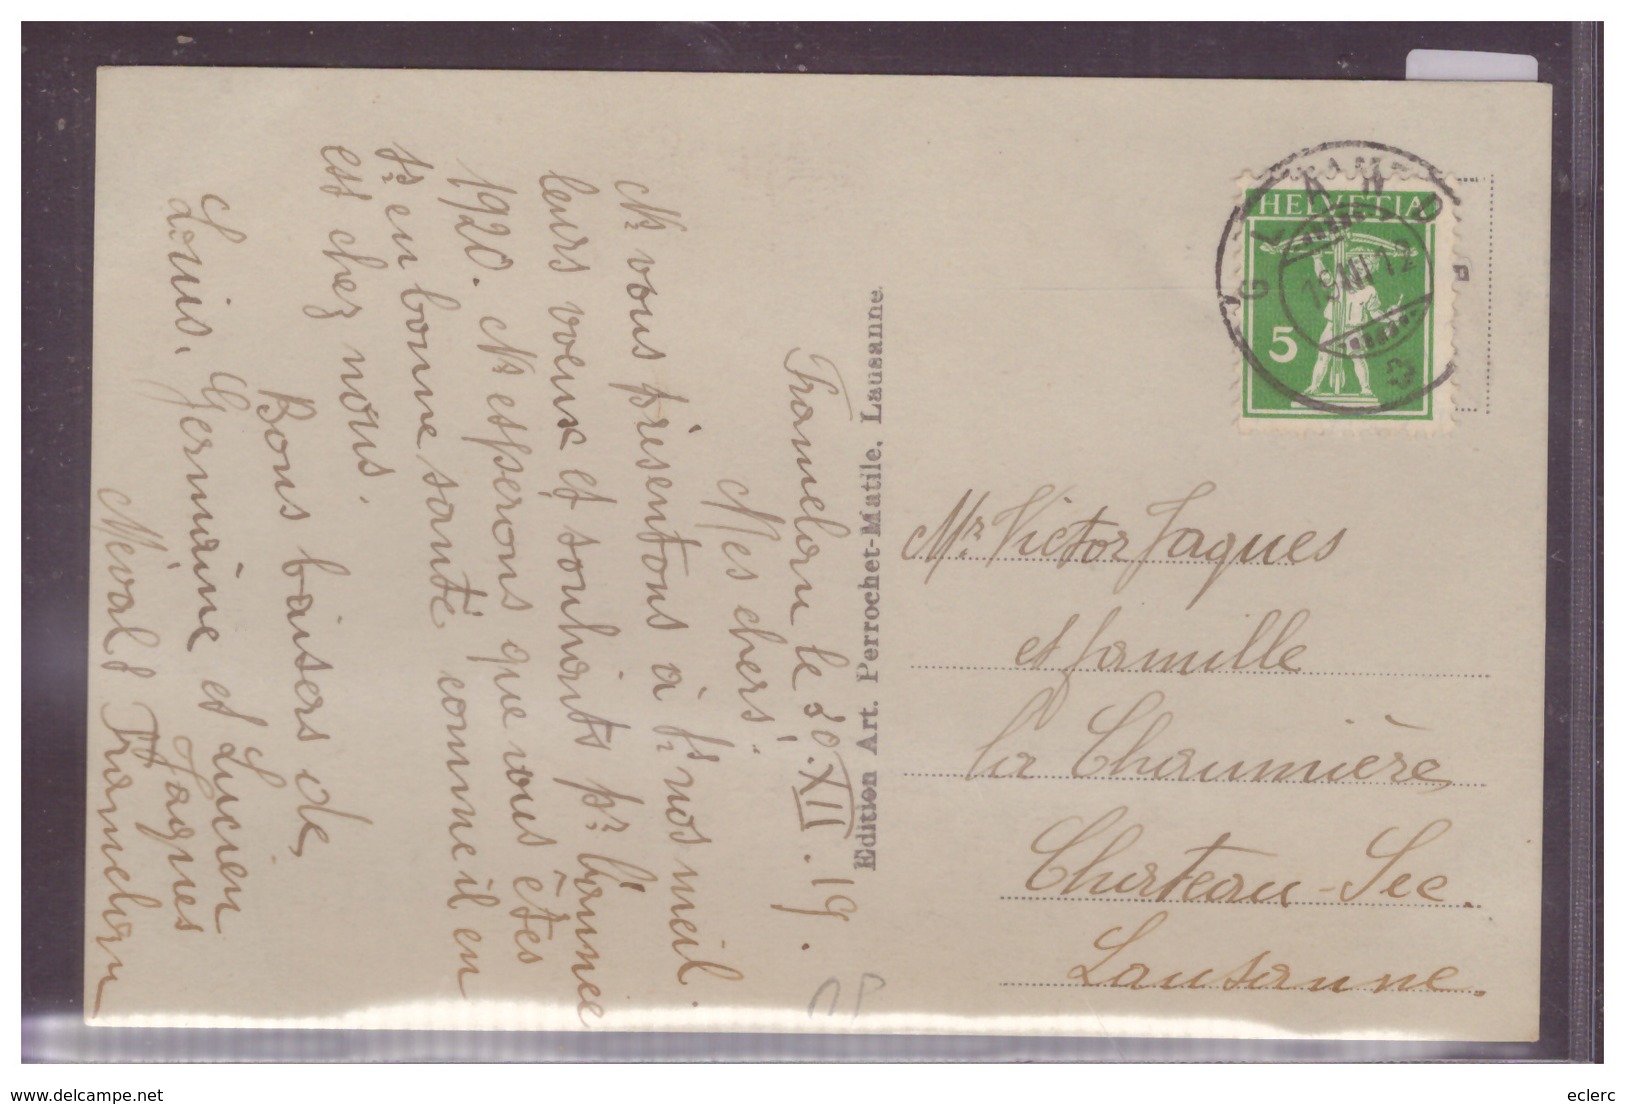 Tramelan le 30.XII.19.
Mes chers,
Ns vous présentons à ts nos meil.
leurs voeux et souhaits pr l'année
1920. Ns espérons que vous êtes
ts en bonne santé comme il en
est chez nous.
Bons baisers de,
Louis, Germaine et Lucien
Jaques
Tramelan
Edition Art. Perrochet-Matile, Lausanne
HELVETIA
5
GLAND
Mr Victor Jaques
et famille
la Chaumière
Chateau-Sec.
Lausanne.
www.delcampe.net
eclerc